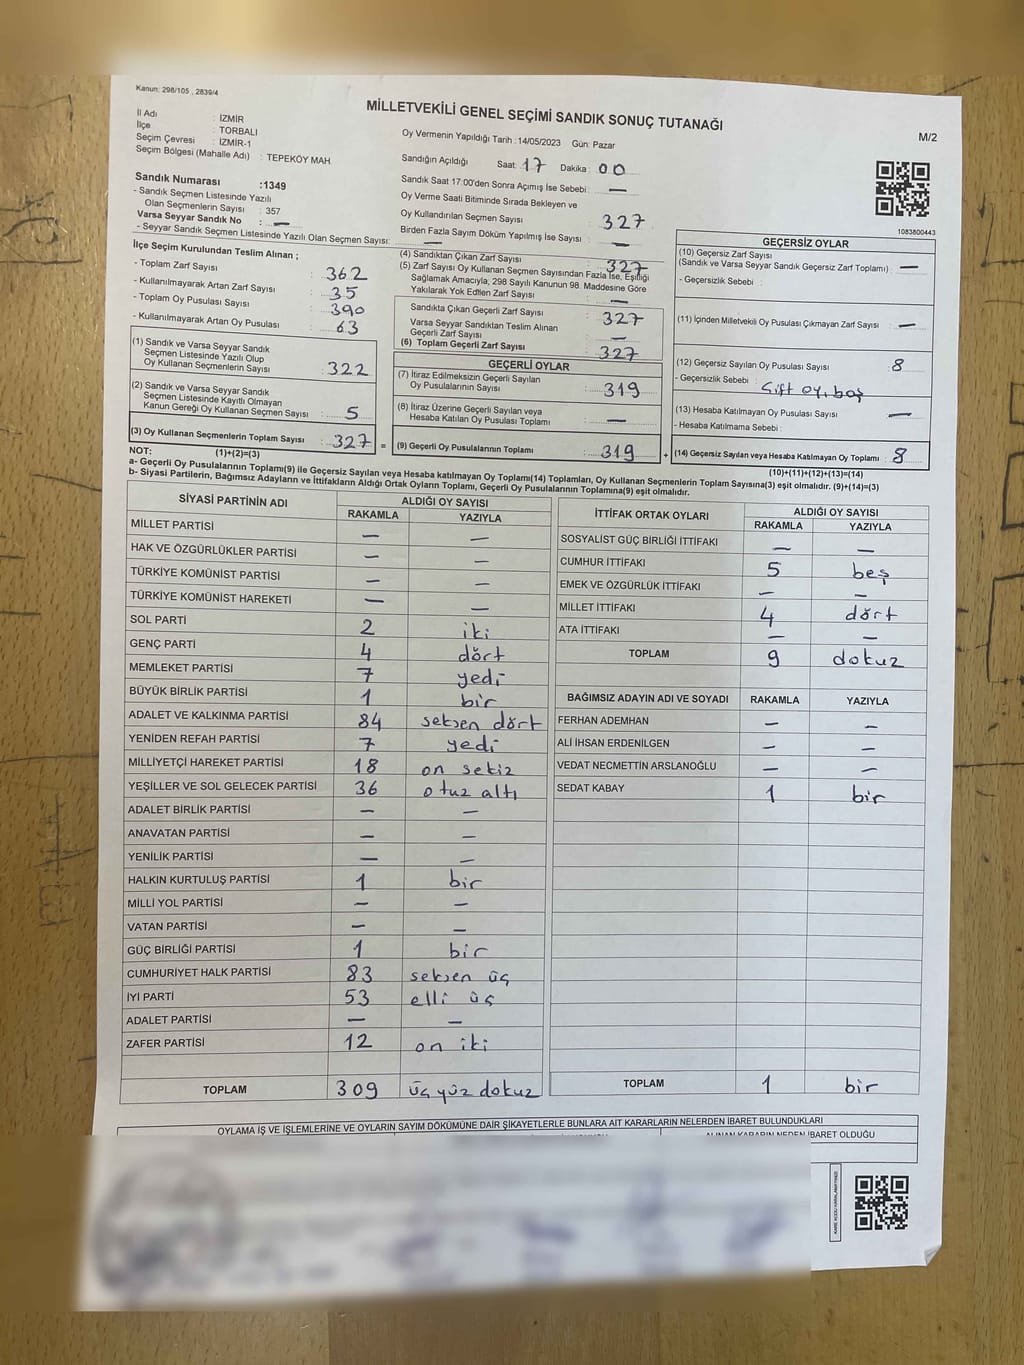 Kanun: 298/105 , 2839/4
MİLLETVEKİLİ GENEL SEÇİMİ SANDIK SONUÇ TUTANAĞI
M/2
İl Adı : İZMİR
İlçe : TORBALI
Seçim Çevresi : İZMİR-1
Seçim Bölgesi (Mahalle Adı) : TEPEKÖY MAH.
Sandık Numarası :1349
- Sandık Seçmen Listesinde Yazılı
Olan Seçmenlerin Sayısı : 357
Varsa Seyyar Sandık No : —
- Seyyar Sandık Seçmen Listesinde Yazılı Olan Seçmen Sayısı: —
İlçe Seçim Kurulundan Teslim Alınan ;
- Toplam Zarf Sayısı : 362
- Kullanılmayarak Artan Zarf Sayısı : 35
- Toplam Oy Pusulası Sayısı : 390
- Kullanılmayarak Artan Oy Pusulası : 63
(1) Sandık ve Varsa Seyyar Sandık
Seçmen Listesinde Yazılı Olup
Oy Kullanan Seçmenlerin Sayısı : 322
(2) Sandık ve Varsa Seyyar Sandık
Seçmen Listesinde Kayıtlı Olmayan
Kanun Gereği Oy Kullanan Seçmen Sayısı : 5
(3) Oy Kullanan Seçmenlerin Toplam Sayısı : 327 =
Oy Vermenin Yapıldığı Tarih : 14/05/2023 Gün: Pazar
Sandığın Açıldığı Saat: 17 Dakika : 00
Sandık Saat 17:00'den Sonra Açımış İse Sebebi : —
Oy Verme Saati Bitiminde Sırada Bekleyen ve
Oy Kullandırılan Seçmen Sayısı : 327
Birden Fazla Sayım Döküm Yapılmış İse Sayısı : —
(4) Sandıktan Çıkan Zarf Sayısı : 327
(5) Zarf Sayısı Oy Kullanan Seçmen Sayısından Fazla İse, Eşitliği
Sağlamak Amacıyla, 298 Sayılı Kanunun 98. Maddesine Göre
Yakılarak Yok Edilen Zarf Sayısı : —
Sandıkta Çıkan Geçerli Zarf Sayısı : 327
Varsa Seyyar Sandıktan Teslim Alınan
Geçerli Zarf Sayısı : —
(6) Toplam Geçerli Zarf Sayısı : 327
GEÇERLİ OYLAR
(7) İtiraz Edilmeksizin Geçerli Sayılan
Oy Pusulalarının Sayısı : 319
(8) İtiraz Üzerine Geçerli Sayılan veya
Hesaba Katılan Oy Pusulası Toplamı : —
(9) Geçerli Oy Pusulalarının Toplamı : 319 +
1083800443
GEÇERSİZ OYLAR
(10) Geçersiz Zarf Sayısı
(Sandık ve Varsa Seyyar Sandık Geçersiz Zarf Toplamı) : —
- Geçersizlik Sebebi :
(11) İçinden Milletvekili Oy Pusulası Çıkmayan Zarf Sayısı : —
(12) Geçersiz Sayılan Oy Pusulası Sayısı : 8
- Geçersizlik Sebebi : Çift oy, boş
(13) Hesaba Katılmayan Oy Pusulası Sayısı : —
- Hesaba Katılmama Sebebi :
(14) Geçersiz Sayılan veya Hesaba Katılmayan Oy Toplamı : 8
NOT: (1)+(2)=(3) (10)+(11)+(12)+(13)=(14)
a- Geçerli Oy Pusulalarının Toplamı(9) ile Geçersiz Sayılan veya Hesaba katılmayan Oy Toplamı(14) Toplamları, Oy Kullanan Seçmenlerin Toplam Sayısına(3) eşit olmalıdır. (9)+(14)=(3)
b- Siyasi Partilerin, Bağımsız Adayların ve İttifakların Aldığı Ortak Oyların Toplamı, Geçerli Oy Pusulalarının Toplamına(9) eşit olmalıdır.
SİYASİ PARTİNİN ADI ALDIĞI OY SAYISI
RAKAMLA YAZIYLA
MİLLET PARTİSİ — —
HAK VE ÖZGÜRLÜKLER PARTİSİ — —
TÜRKİYE KOMÜNİST PARTİSİ — —
TÜRKİYE KOMÜNİST HAREKETİ — —
SOL PARTİ 2 iki
GENÇ PARTİ 4 dört
MEMLEKET PARTİSİ 7 yedi
BÜYÜK BİRLİK PARTİSİ 1 bir
ADALET VE KALKINMA PARTİSİ 84 seksen dört
YENİDEN REFAH PARTİSİ 7 yedi
MİLLİYETÇİ HAREKET PARTİSİ 18 on sekiz
YEŞİLLER VE SOL GELECEK PARTİSİ 36 otuz altı
ADALET BİRLİK PARTİSİ — —
ANAVATAN PARTİSİ — —
YENİLİK PARTİSİ — —
HALKIN KURTULUŞ PARTİSİ 1 bir
MİLLİ YOL PARTİSİ — —
VATAN PARTİSİ — —
GÜÇ BİRLİĞİ PARTİSİ 1 bir
CUMHURİYET HALK PARTİSİ 83 seksen üç
İYİ PARTİ 53 elli üç
ADALET PARTİSİ — —
ZAFER PARTİSİ 12 on iki
TOPLAM 309 üç yüz dokuz
İTTİFAK ORTAK OYLARI ALDIĞI OY SAYISI
RAKAMLA YAZIYLA
SOSYALİST GÜÇ BİRLİĞİ İTTİFAKI — —
CUMHUR İTTİFAKI 5 beş
EMEK VE ÖZGÜRLÜK İTTİFAKI — —
MİLLET İTTİFAKI 4 dört
ATA İTTİFAKI — —
TOPLAM 9 dokuz
BAĞIMSIZ ADAYIN ADI VE SOYADI RAKAMLA YAZIYLA
FERHAN ADEMHAN — —
ALİ İHSAN ERDENİLGEN — —
VEDAT NECMETTİN ARSLANOĞLU — —
SEDAT KABAY 1 bir
TOPLAM 1 bir
OYLAMA İŞ VE İŞLEMLERİNE VE OYLARIN SAYIM DÖKÜMÜNE DAİR ŞİKAYETLERLE BUNLARA AİT KARARLARIN NELERDEN İBARET BULUNDUKLARI
ALINAN KARARIN NEDEN İBARET OLDUĞU